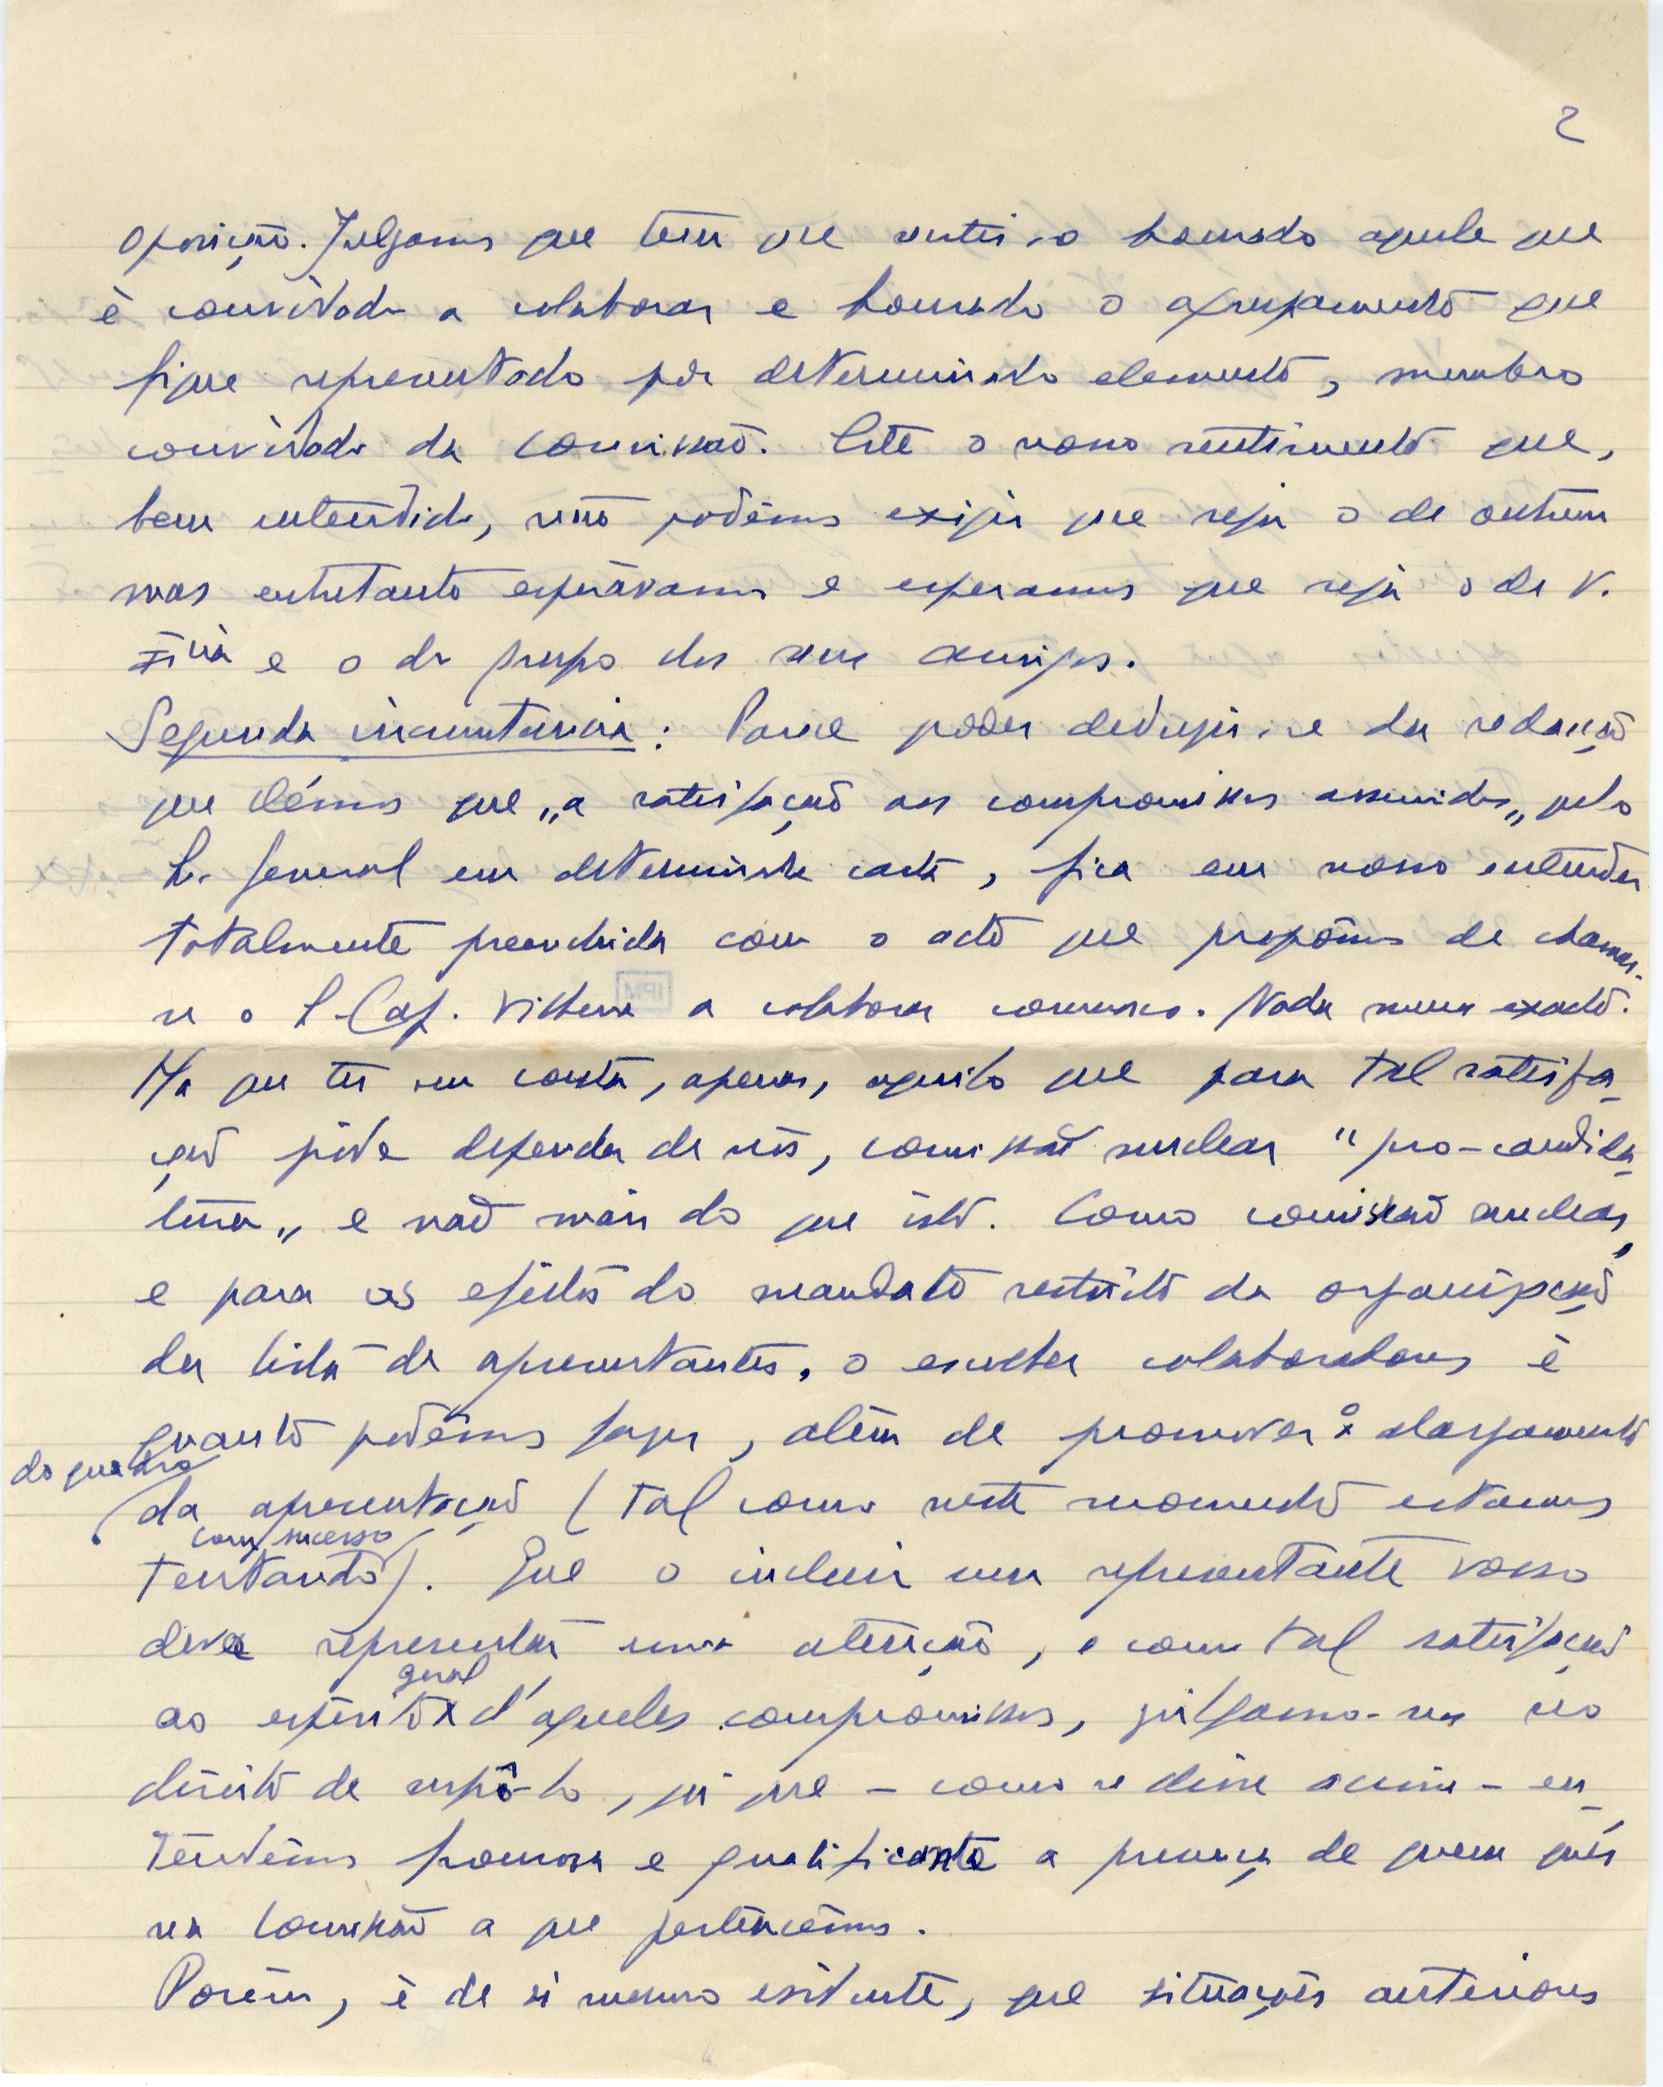 2
oposição. Julgamos que tem que sentir-se honrado aquele que
è convidado a colaborar e honrado o agrupamento que
fique representado por determinado elemento, membro
convidado da Comissão. Este o nosso sentimento que,
bem entendido, não podêmos exigir que seja o de outrem
mas entretanto esperàvamos e esperamos que seja o de V.
Exciá e o do grupo dos seus amigos.
Segunda circunstancia: Parece poder deduzir-se da redacção
que démos que „a satisfação aos compromissos assumidos„ pelo
Sr. General em determinada carta, fica em nosso entender
totalmente preenchida com o acto que propômos de chamar-
se o S. Cap. Vilhena a colaborar connosco. Nada menos exacto.
Ha que ter em conta, apenas, aquilo que para tal satisfa-
ção póde depender de nós, comissão nuclear "pro-candida-
tura„ e não mais do que isto. Como comissão nuclear,
e para os efeitos do mandato restricto da organização
da lista de apresentantes, o escolher colaboradores è
quanto podêmos fazer, alêm de promover o alargamento
do quadro
da apresentação (tal como neste momento estamos
com sucesso
tentando). Que o incluir um representante vosso
deva representar uma atenção, e com tal satisfação
geral
ao espirito d'aqueles compromissos, julgamo-nos no
direito de supô-lo, já que – como se disse acima – en-
tendêmos honrosa e qualificante a presença de quem quer
na Comissão a que pertencêmos.
Porêm, è de si mesmo evidente, que situações anteriores